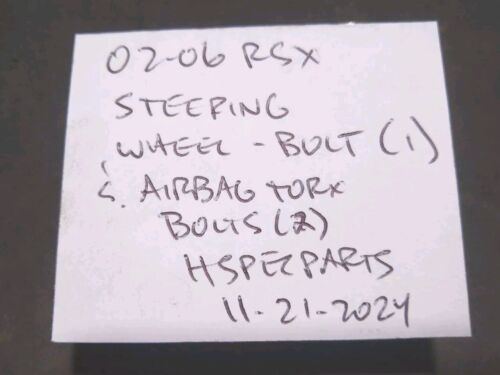 02-06 RSX
STEERING
WHEEL - BOLT (1)
&. AIRBAG TORX
BOLTS (2)
HSPECPARTS
11-21-2024